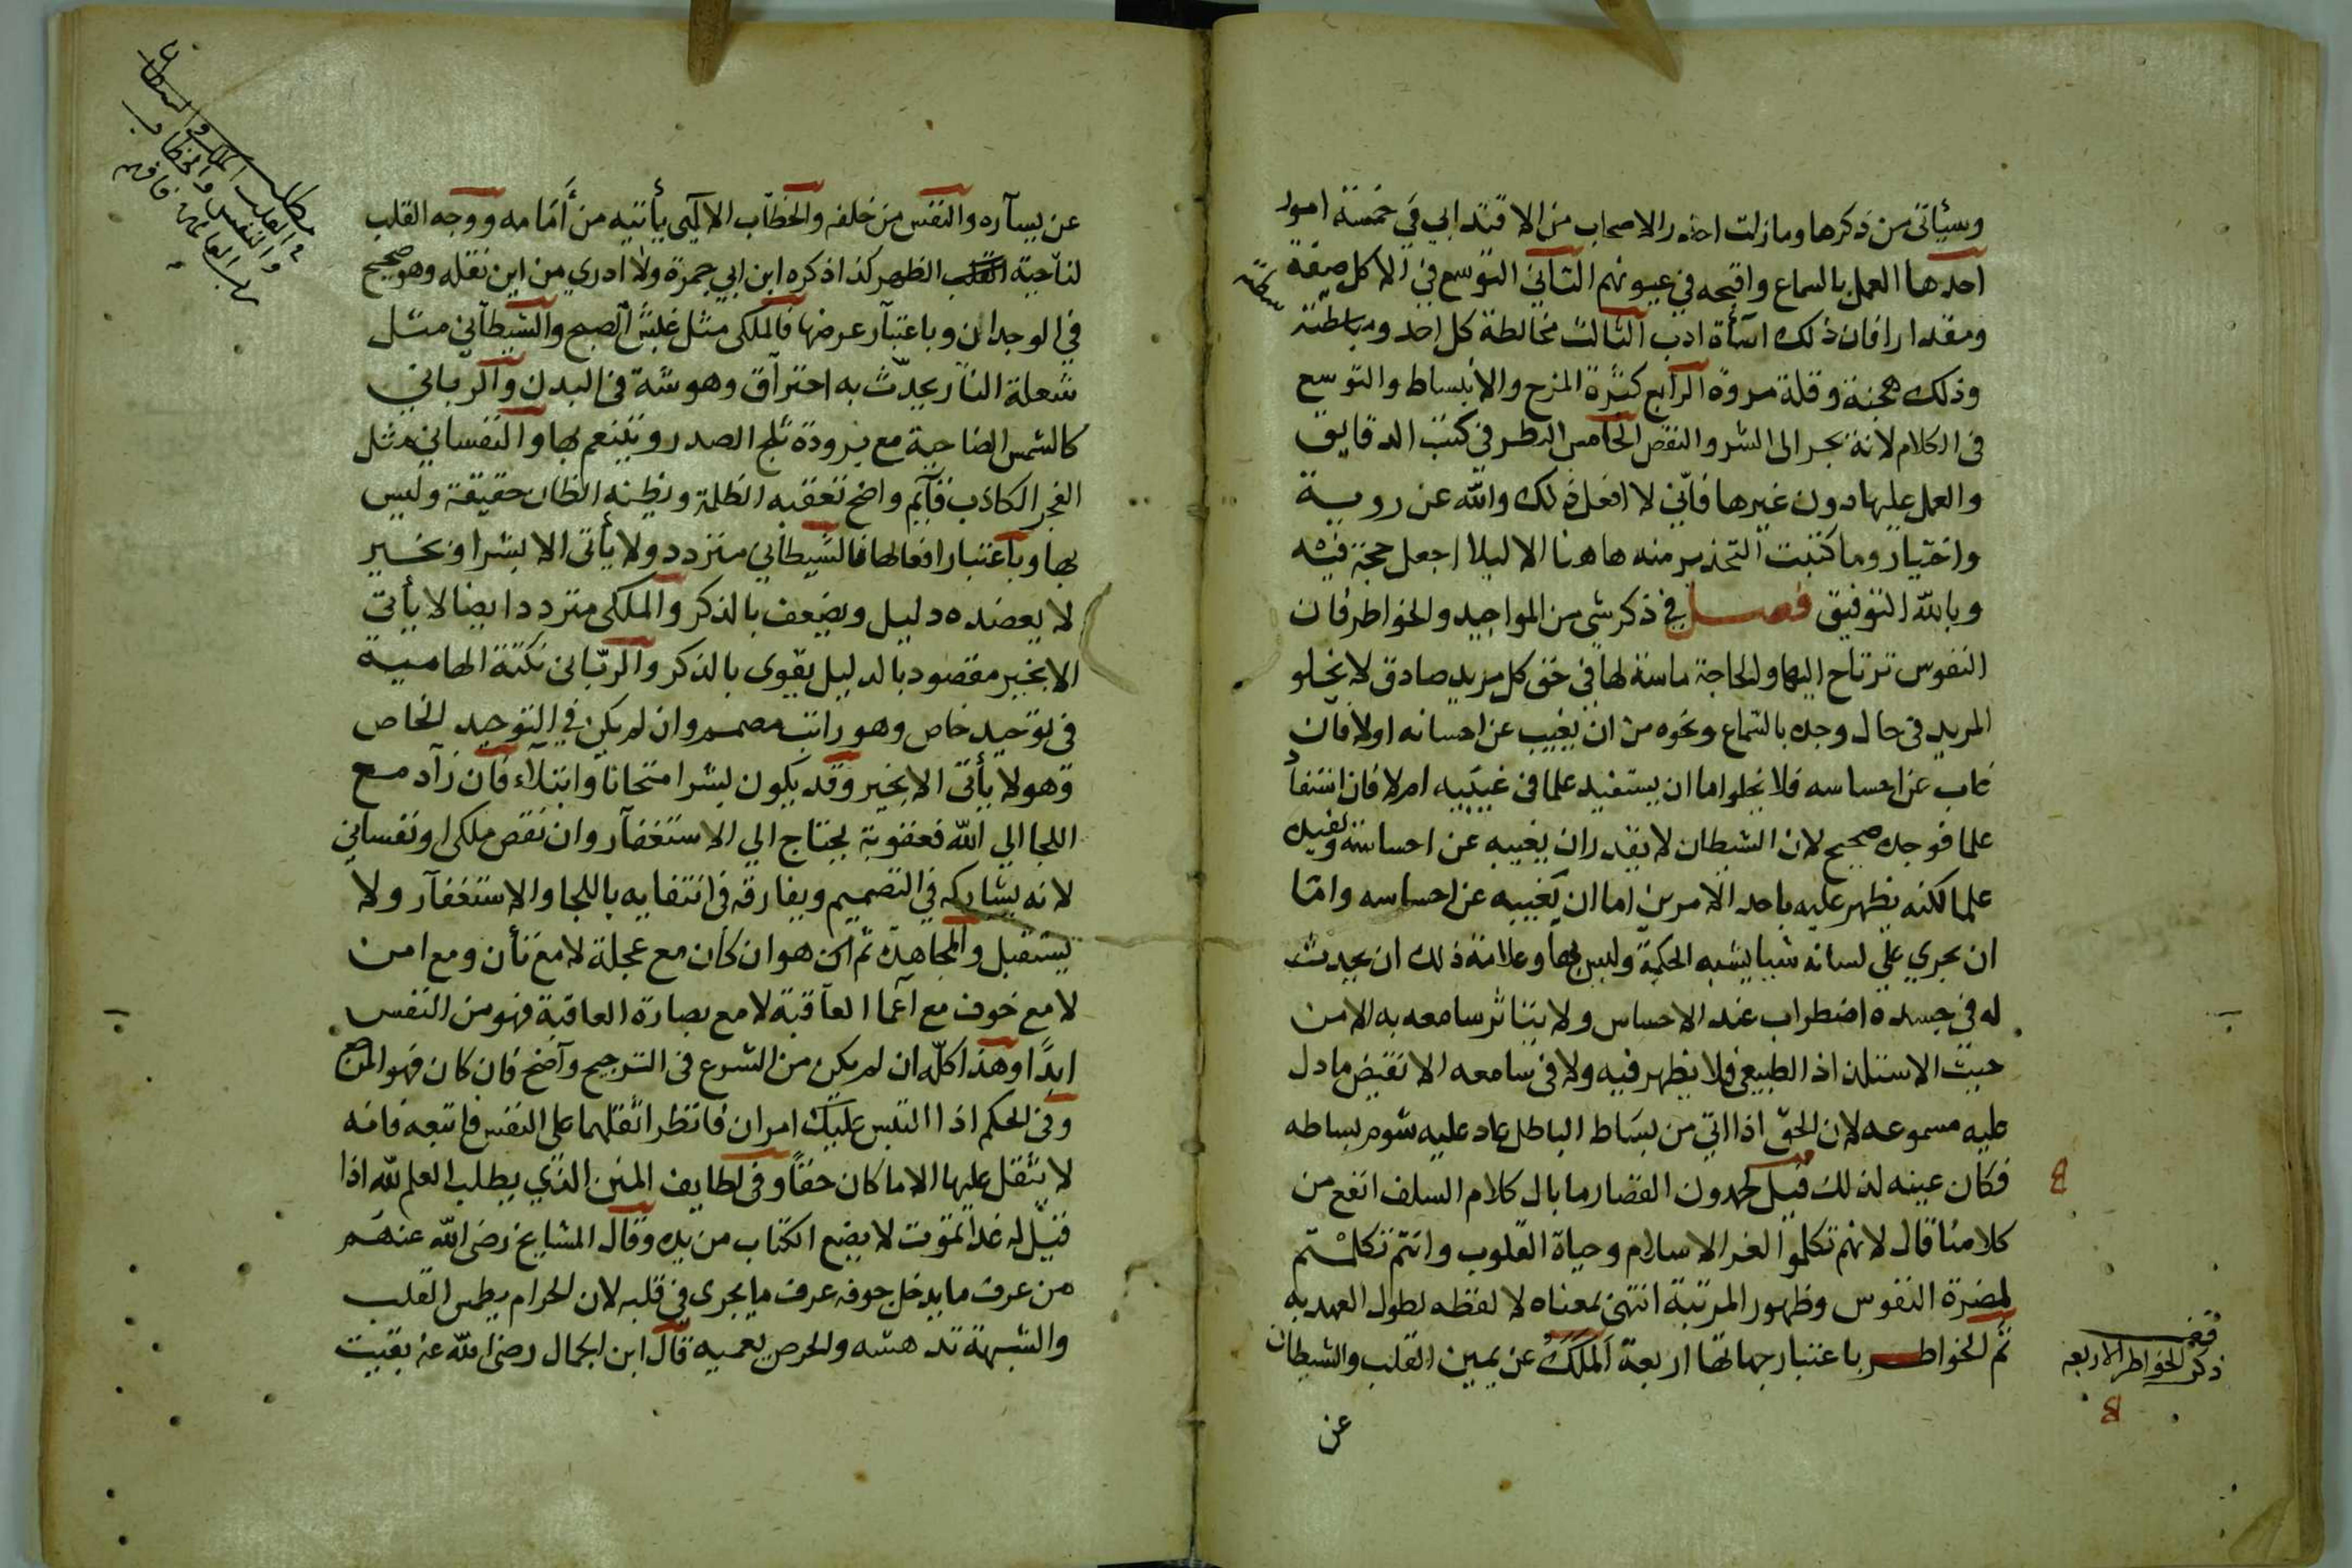 وسيأتى من ذكرها وما زلت احذر الاصحاب من الاقتدا بي في خمسة امور
احدها العمل بالسماع واقبحه في عيونهم الثاني التوسع في الاكل صفة
ومقدارا فان ذلك اسأة ادب الثالث مخالطة كل احد ومباسطته
وذلك هجنة وقلة مروة الرابع كثرة المزح والانبساط والتوسع
فى الكلام لانه يجر الى الشر والنقص الخامس النظر في كتب الدقايق
والعمل عليها دون غيرها فانّي لا افعل ذلك والله عن روية
واختيار وما كتبت التحذير منه هاهنا الا ليلا اجعل حجة فيه
وبالله التوفيق فصل في ذكر شى من المواجيد والخواطر فان
النفوس ترتاح اليها والحاجة ماسة لها في حق كل مريد صادق لا يخلو
المريد فى حال وجده بالسماع ونحوه من ان يغيب عن احساسه اولا فان
غاب عن احساسه فلا يخلو اما ان يستفيد علما فى غيبته ام لا فان استفاد
علما فوجده صحيح لان الشيطان لا يقدر ان يغيبه عن احساسه ويفيده
علما لكنه يظهر عليه باحد الامرين اما ان يغيبه عن احساسه واما
ان يجري على لسانه شيا يشبه الحكمة وليس بها وعلامة ذلك ان يحدث
له فى جسده اضطراب عند الاحساس ولا يتاثر سامعه به الا من
حيث الاستلذاذ الطبيعى فلا يظهر فيه ولا فى سامعه الا نقيض ما دل
عليه مسموعه لان الحق اذا اتى من بساط الباطل عاد عليه شوم بساطه
فكان عينه لذلك قيل لحمدون القصار ما بال كلام السلف انفع من
كلامنا قال لانهم تكلموا لعز الاسلام وحياة القلوب وانتم تكلمتم
لمضرة النفوس وظهور المرتبة انتهى بمعناه لا لفظه لطول العهد به
ثم الخواطر باعتبار جهاتها اربعة الملك عن يمين القلب والشيطان
عن
قف
ذكر الخواطر الاربعه
عن يساره والنفس من خلفه والخطاب الالهى يأتيه من أمامه ووجه القلب
لناحية الظهر كذا ذكره ابن ابي جمرة ولا ادري من اين نقله وهو صحيح
في الوجدان وباعتبار عرضها فالملكى مثل غلس الصبح والشيطاني مثل
شعلة النار يحدث به احتراق وهوشة فى البدن والرباني
كالشمس الضاحية مع برودة تثلج الصدر ويتنعم بها والنفساني مثل
الفجر الكاذب قايم واضح تعقبه الظلمة ويظنه الظان حقيقة وليس
بها وباعتبار افعالها فالشيطاني متردد ولا يأتى الا بشر او بخير
لا يعضده دليل ويضعف بالذكر والملكى متردد ايضا لا يأتي
الا بخير مقصود بالدليل يقوى بالذكر والربّانى نكتة الهامية
فى توحيد خاص وهو راتب مصمم وان لم يكن في التوحيد الخاص
وهو لا يأتى الا بخير وقد يكون لبشر امتحانا وابتلاء فان زاد مع
اللجا الي الله فعقوبة يحتاج الي الاستغفار وان نقص ملكى او نفساني
لانه يشاركه في التصميم ويفارقه فى انتفايه باللجا والاستغفار ولا
يستقبل والمجاهدة ثم اكن هو ان كان مع عجلة لا مع تأن ومع امن
لا مع خوف مع اعما العاقبة لا مع بصارة العاقبة فهو من النفس
ابدًا وهذا كلّه ان لم يكن من الشرع فى الترجيح واضح فان كان فهو
وفى الحكم اذا التبس عليك امران فانظر اثقلهما على النفس فاتبعه فانه
لا يثقل عليها الا ما كان حقاً وفى لطايف المنن الذي يطلب العلم لله اذا
قيل له غدا تموت لا يضع الكتاب من يده وقال المشايخ رضى الله عنهم
من عرف ما يدخل جوفه عرف ما يجرى في قلبه لان الحرام يطمس القلب
والشبهة تدهشه والحرص يعميه قال ابن الجمال رضى الله عنه بقيت